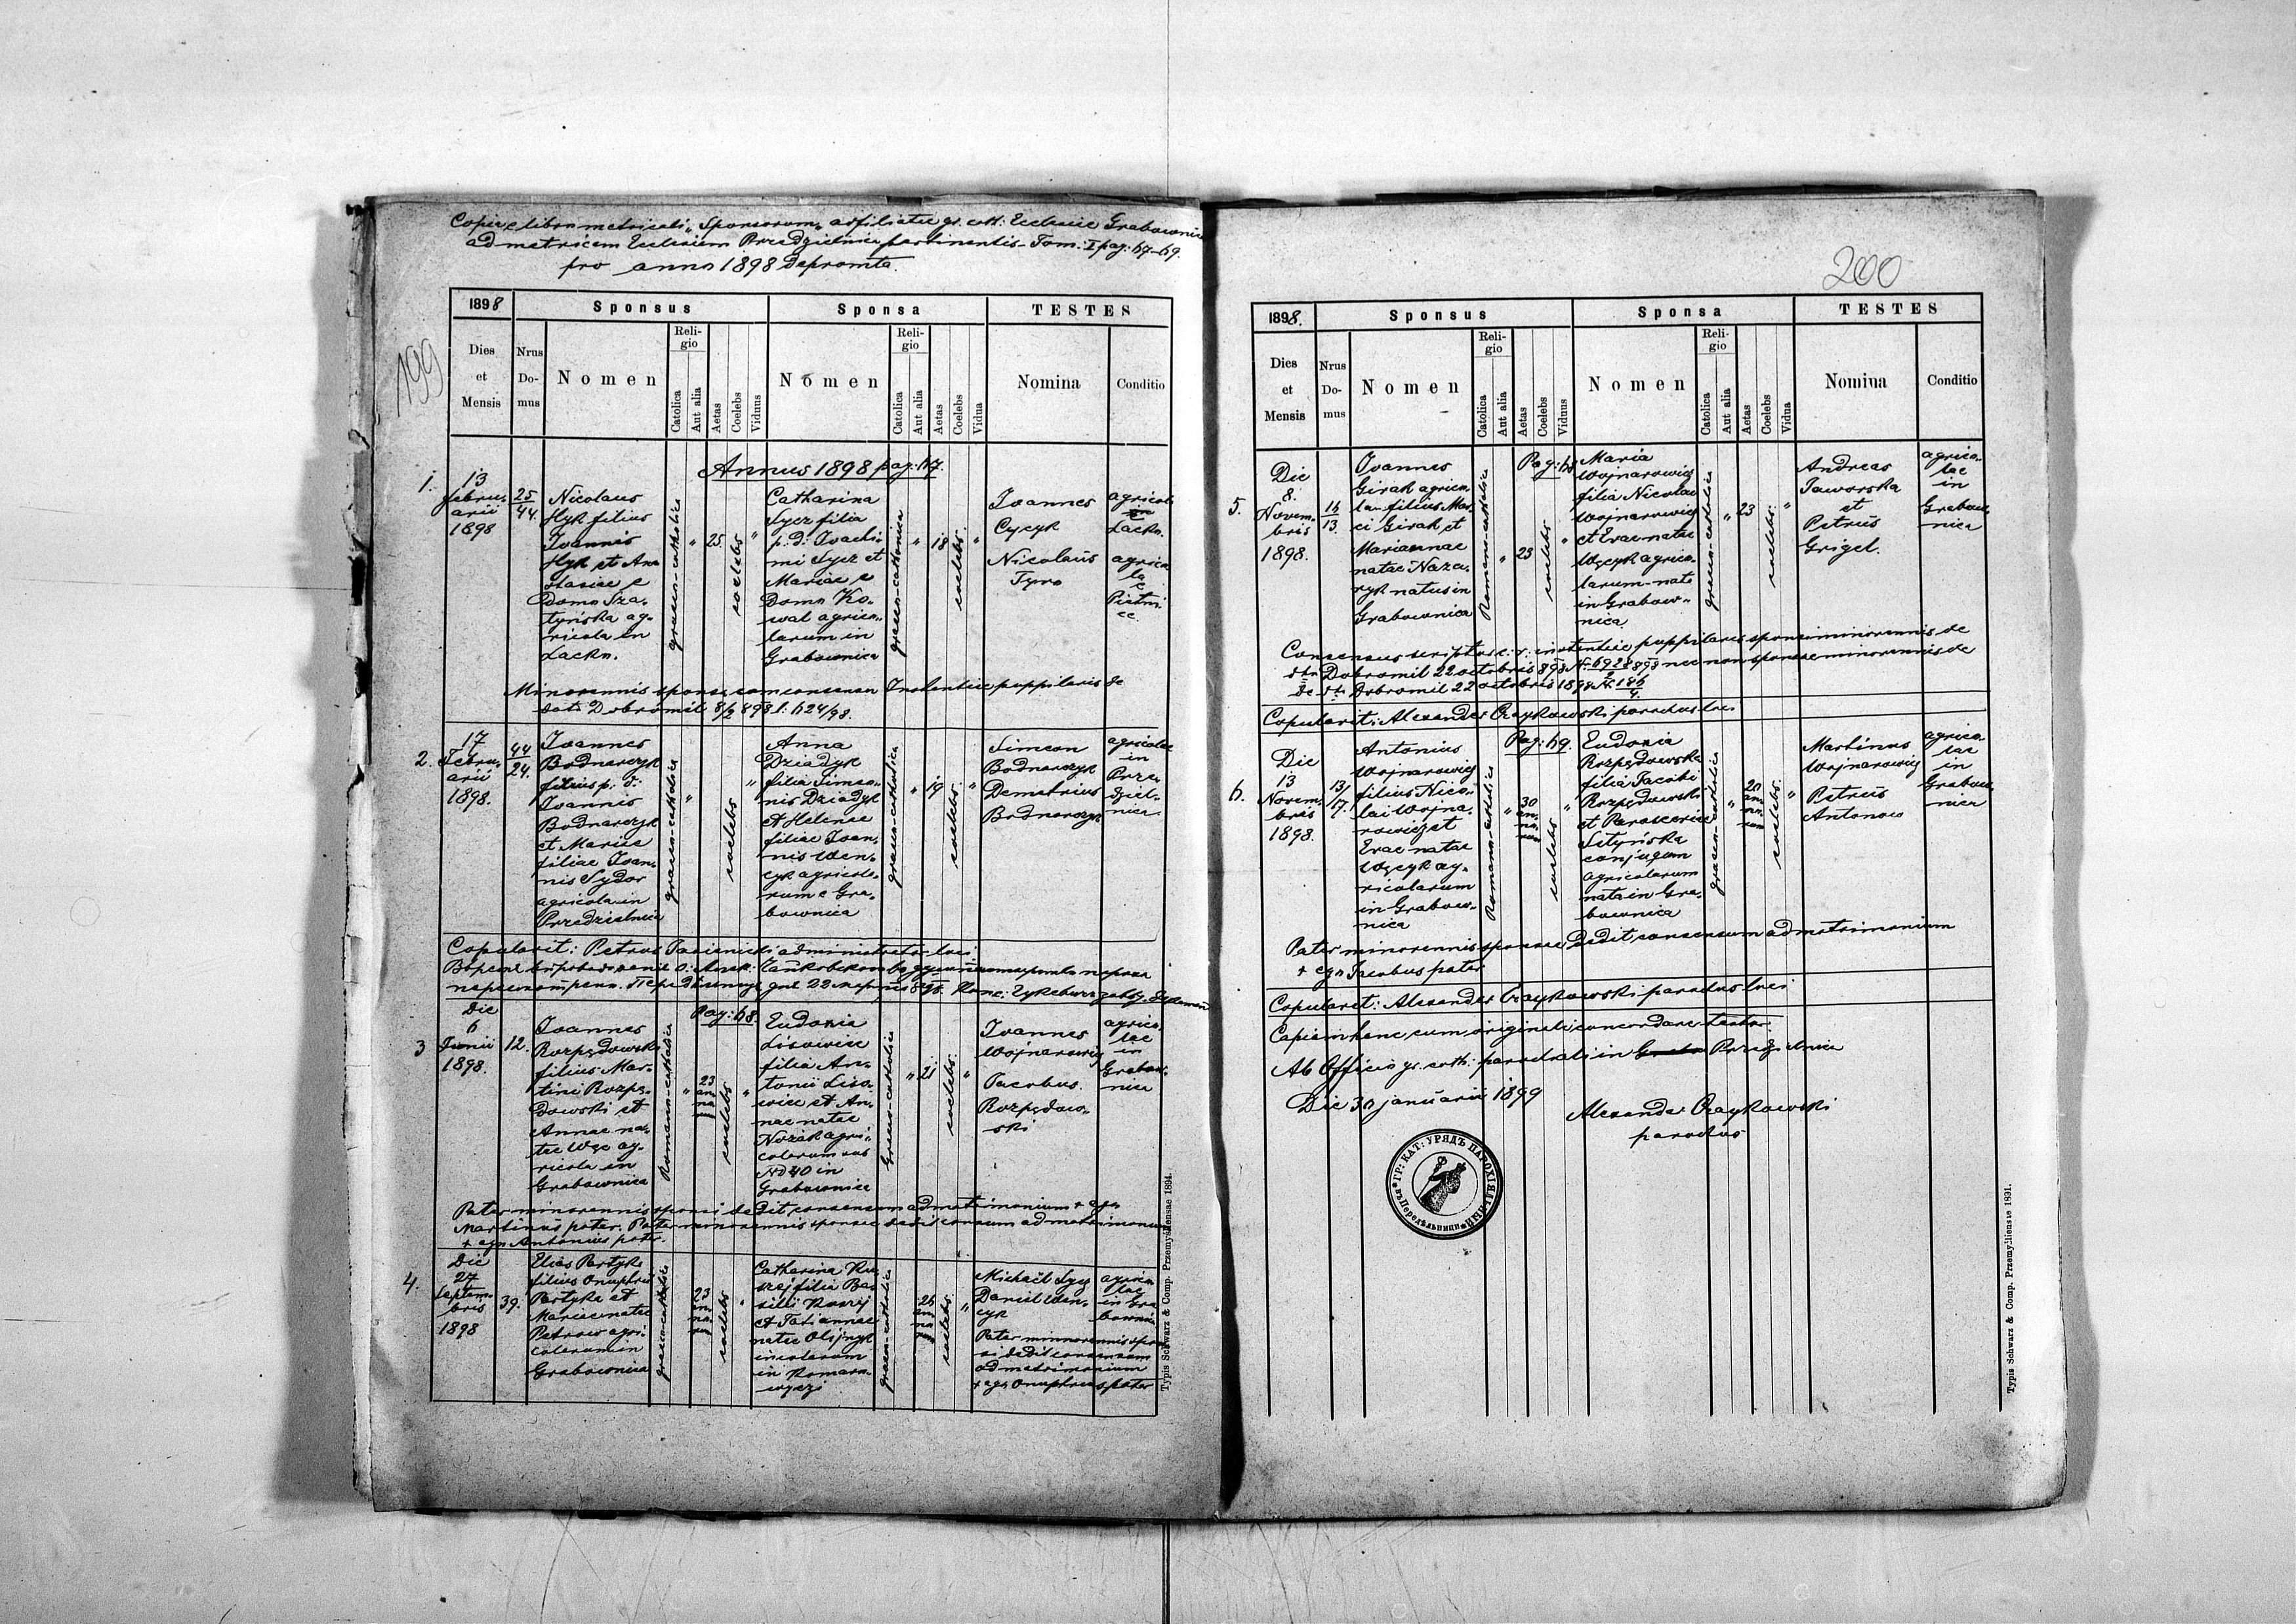 Copia e libro metricali „Sponsorum„ adfiliatae gr. cath: Ecclesiae Grabownica
ad metricam Ecclesiam Przedzielnica pertinentis - Tom: I pag: 67-69.
pro anno 1898 depromta.
199
1898
Sponsus
Sponsa
TESTES
Dies
et
Mensis
Nrus
Do-
mus
Nomen
Reli-
gio
Catolica
Aut alia
Aetas
Coelebs
Viduus
Nomen
Reli-
gio
Catolica
Aut alia
Aetas
Coelebs
Vidua
Nomina
Conditio
Annus 1898 pag: 67.
1.
13
febru-
arii
1898
25
44.
Nicolaus
Hyk filius
Ioannis
Hyk et Ana
stasiae e
domo Sza-
tyńska ag-
ricola in
Lacko.
graeco-catholica
„
25
coelebs
„
Catharina
Sycz filia
p. d. Ioachi
mi Sycz et
Mariae e
domo Ko-
wal agrico-
larum in
Grabownica
graeco-catholica
„
18
coelebs
„
Ioannes
Cycyk
Nicolaus
Tyro
agricola
in
Lacko.
agrico
la
e
Minorennis sponsa cum consensu Instantiae puppilaris de
dato Dobromil 8/2 898 l: 624/98.
2.
17
Febru-
arii
1898.
44
24.
Ioannes
Bodnarczyk
filius p. d.
Ioannis
Bodnarczyk
et Mariae
filiae Ioan-
nis Sydor
agricola in
Przedzielnica
graeco-catholica
„
coelebs
„
Anna
Dziadyk
filia Simeo-
nis Dziadyk
et Helenae
filiae Ioan-
nis Wen-
cyk agricola-
rum e Gra-
bownica
graeco-catholica
„
19
coelebs
„
Simeon
Bodnarczyk
Demetrius
Bodnarczyk
agricolae
in
Prze
dziel-
nica
Copulavit: Petrus administrator loci
3
Die
6
Iunii
1898.
12.
Pag: 68.
Ioannes
Rozpędowski
filius Mar-
tini Rozpę-
dowski et
Annae na-
tae Węc ag-
ricola in
Grabownica
Romano-catholica
„
23
an-
no-
rum
coelebs
„
Eudoxia
Lisowicz
filia An-
tonii Liso-
wicz et An-
nae natae
Nozak agri-
colarum sub
No 40 in
Grabownica
Graeco-catholica
„
21
coelebs
„
Ioannes
Wojnarowicz
Iacobus
Rozpędow-
ski
agrico
lae
in
Grabow-
nica
Pater minorennis sponsi dedit consensum ad matrimonium + ego
Martinus pater. Pater minorennis sponsae dedit consensum ad matrimonium
+ ego Antonius pater.
4.
Die
27
Septem-
bris
1898
39.
Elias Partyka
filius Onuphrii
Partyka et
Mariae natae
Petrow agri-
colarum in
Grabownica
graeco-catholica
23
an-
no-
rum
coelebs
„
Catharina
filia Ba-
silii
et Tatiannae
natae Olijnyk
incolarum
in Komaro
wyczi
graeco-catholica
26
an
no
rum
coelebs
„
Michaël Sycz
Daniel Wen-
cyk
agrico
lae
in Gra
bownica
Pater minorennis spon
si dedit consensum
ad matrimonium
+ ego Onuphrius pater
Typis Schwarz & Comp. Przemyśliensae 1894.
200
1898.
Sponsus
Sponsa
TESTES
Dies
et
Mensis
Nrus
Do-
mus
Nomen
Reli-
gio
Catolica
Aut alia
Aetas
Coelebs
Viduus
Nomen
Reli-
gio
Catolica
Aut alia
Aetas
Coelebs
Vidua
Nomina
Conditio
5.
Die
8.
Novem-
bris
1898.
16
13.
Pag: 68
Ioannes
Girak agrico
la filius Mar
ci Girak et
Mariannae
natae Naza-
ryk natus in
Grabownica
Romano-catholica
„
23
coelebs
„
Maria
Wojnarowicz
filia Nicolai
Wojnarowicz
et Evae natae
Węcyk agrico-
larum nata
in Grabow-
nica
graeco-catholica
„
23
coelebs
„
Andreas
Jaworska
et
Petrus
Grigel.
agrico-
lae
in
Grabow
nica
Consensus scriptus c. r. instantiae puppilaris sponsi minorennis de
dto Dobromil 22 octobris 898 N: 6928/898 nec non sponsae minorennis de
de dto Dobromil 22 octobris 1898
Copulavit: Alexander Czaykowski parochus loci
6.
Die
13
Novem-
bris
1898.
13/
17.
Pag: 69.
Antonius
Wojnarowicz
filius Nico-
lai Wojna-
rowicz et
Evae natae
Węcyk ag-
ricolarum
in Grabow-
nica
Romano-catholica
„
30
an-
no-
rum
coelebs
„
Eudoxia
Rozpędowska
filia Iacobi
Rozpędowski
et Parasceviae
conjugum
agricolarum
nata in Gra-
bownica
graeco-catholica
„
20
an-
no-
rum
coelebs
„
Martinus
Wojnarowicz
Petrus
Antonow
agrico-
lae
in
Grabow
nica
Pater minorennis sponsae dedit consensum ad matrimonium
+ ego Iacobus pater
Copulavit: Alexander Czaykowski parochus loci
Copiam hanc cum originali concordare testor.
Ab Officio gr. cath: parochiali in Przedzielnica
Die 30 januarii 1899
Alexander Czaykowski
parochus
ГР: КАТ: УРЯДЪ ПАРОХІЯЛЬНЫЙ
Typis Schwarz & Comp. Przemyśliensie 1891.